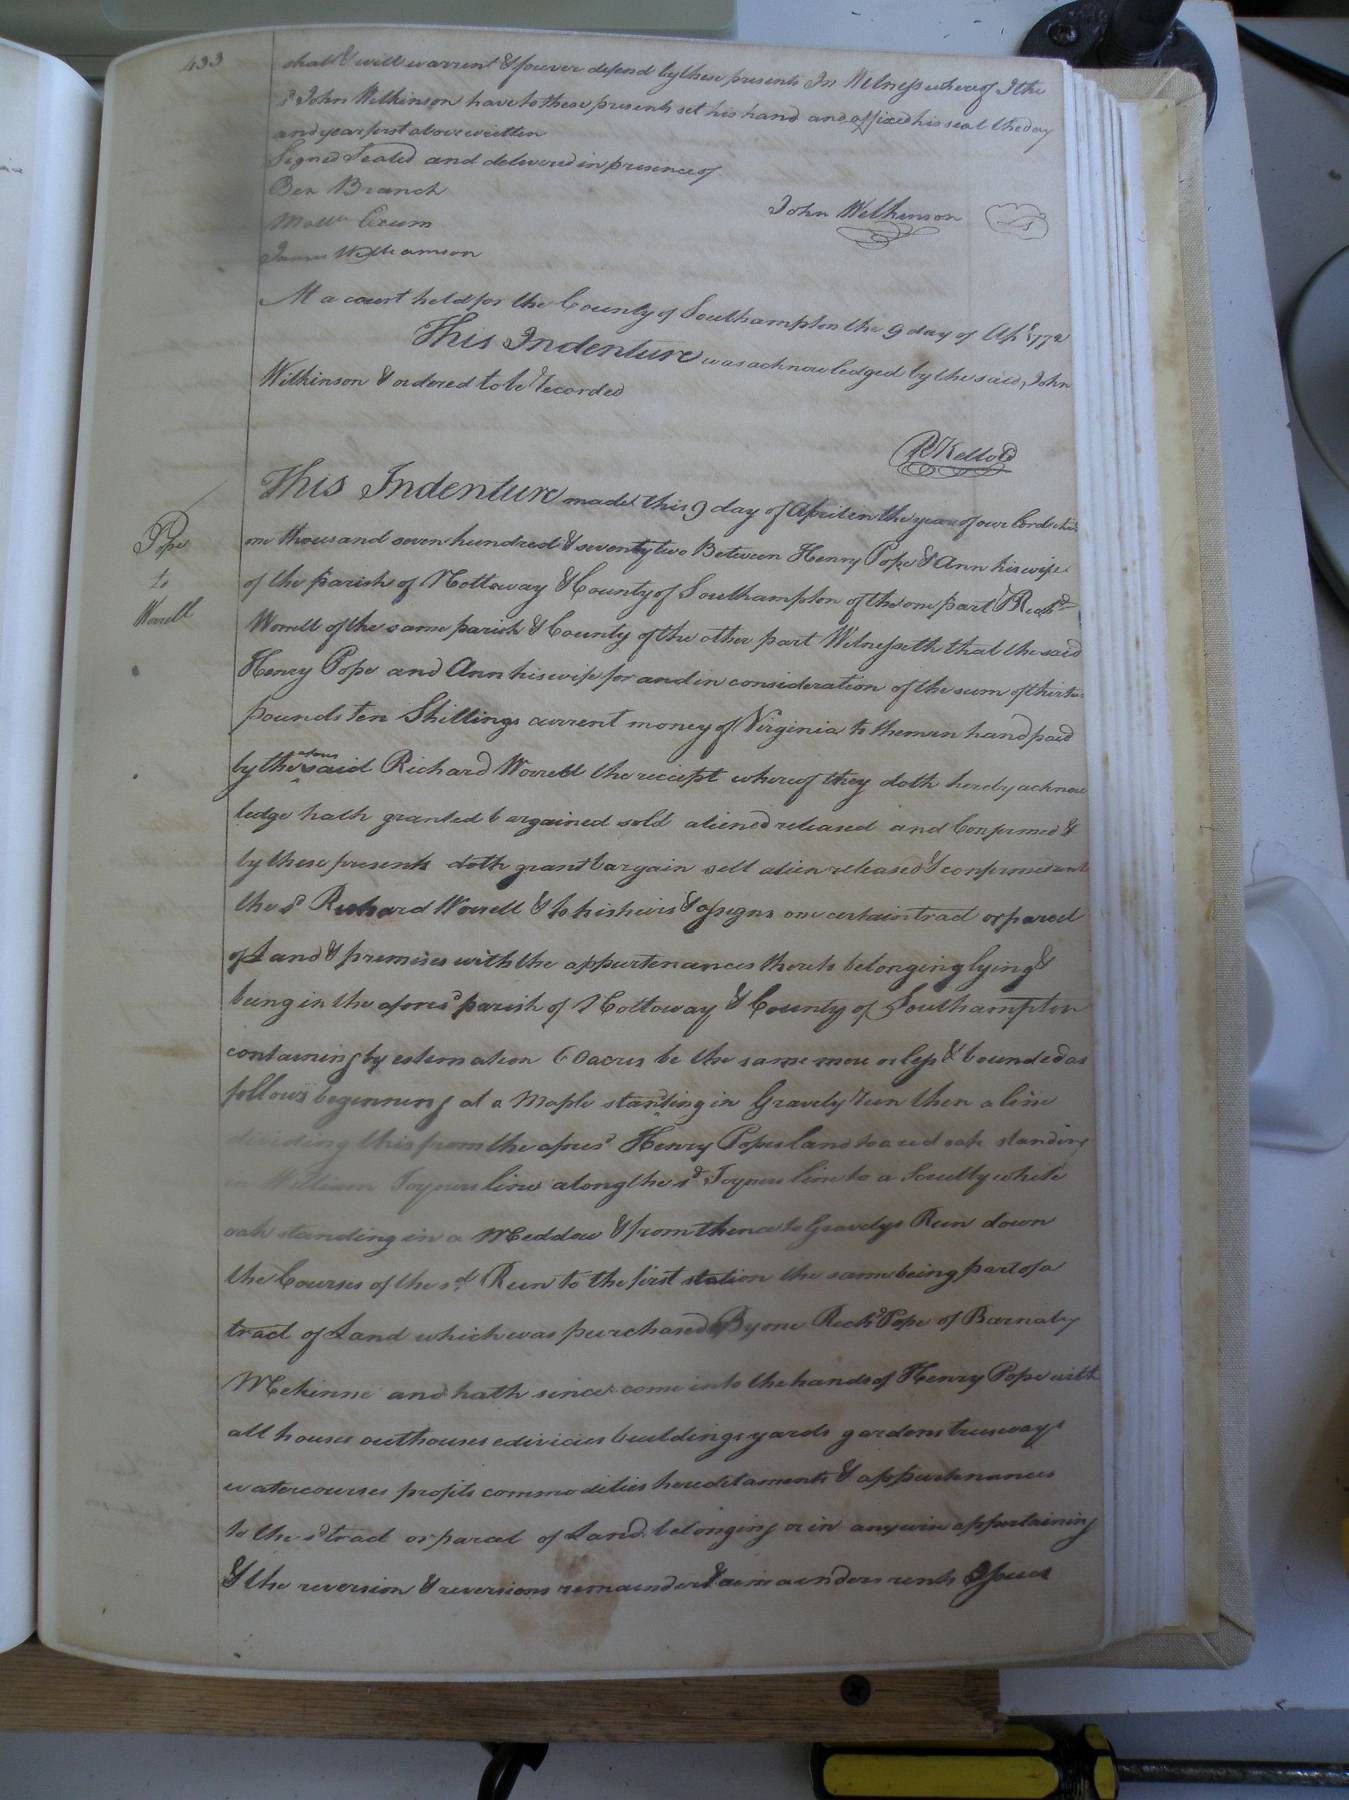 433
shall & will warrent & forever defend by these presents In Witness whereof I the
sd John Wilkinson have to these presents set his hand and affixed his seal the day
and year first above written
Signed Sealed and delivered in presence of
Ben Branch
John Wilkinson
Crum
James Williamson
At a court held for the County of Southampton the 9 day of Apl 1772
This Indenture was acknowledged by the said John
Wilkinson & ordered to be recorded
R Kello
This Indenture made this 9 day of April in the year of our Lord
one thousand seven hundred & seventy two Between Henry Pope & Ann his wife
of the parish of Nottoway & County of Southampton of the one part Richd
Pope
to
Worrell
Worrell of the same parish & County of the other part Witnesseth that the said
Henry Pope and Ann his wife for and in consideration of the sum of
pounds ten Shillings current money of Virginia to them in hand paid
by the afore said Richard Worrell the receipt whereof they doth hereby acknow
ledge hath granted bargained sold aliened released and Confirmed &
by these presents doth grant bargain sell alien released & confirmed unto
the sd Richard Worrell & to his heirs & assigns one certain tract or parcel
of Land & premises with the appurtenances thereto belonging lying &
being in the afored parish of Nottoway & County of Southampton
containing by estimation 60 acres be the same more or less & bounded as
follows beginning at a Maple standing in Gravely run then a line
dividing this from the afored Henry Popes land to a red oak standing
in William Joyners line along the sd Joyners line to a Scrubby white
oak standing in a Meddow & from thence to Gravelys Run down
the Courses of the sd Run to the first station the same being part of a
tract of Land which was purchased By one Richd Pope of Barnaby
Mckinne and hath since come into the hands of Henry Pope with
all houses outhouses edivicies buildings yards gardens ways
watercourses profits commodities hereditaments & appurtenances
to the sd tract or parcel of Land belonging or in anywise appertaining
& the reversion & reversions remainder & remainders rents Issues